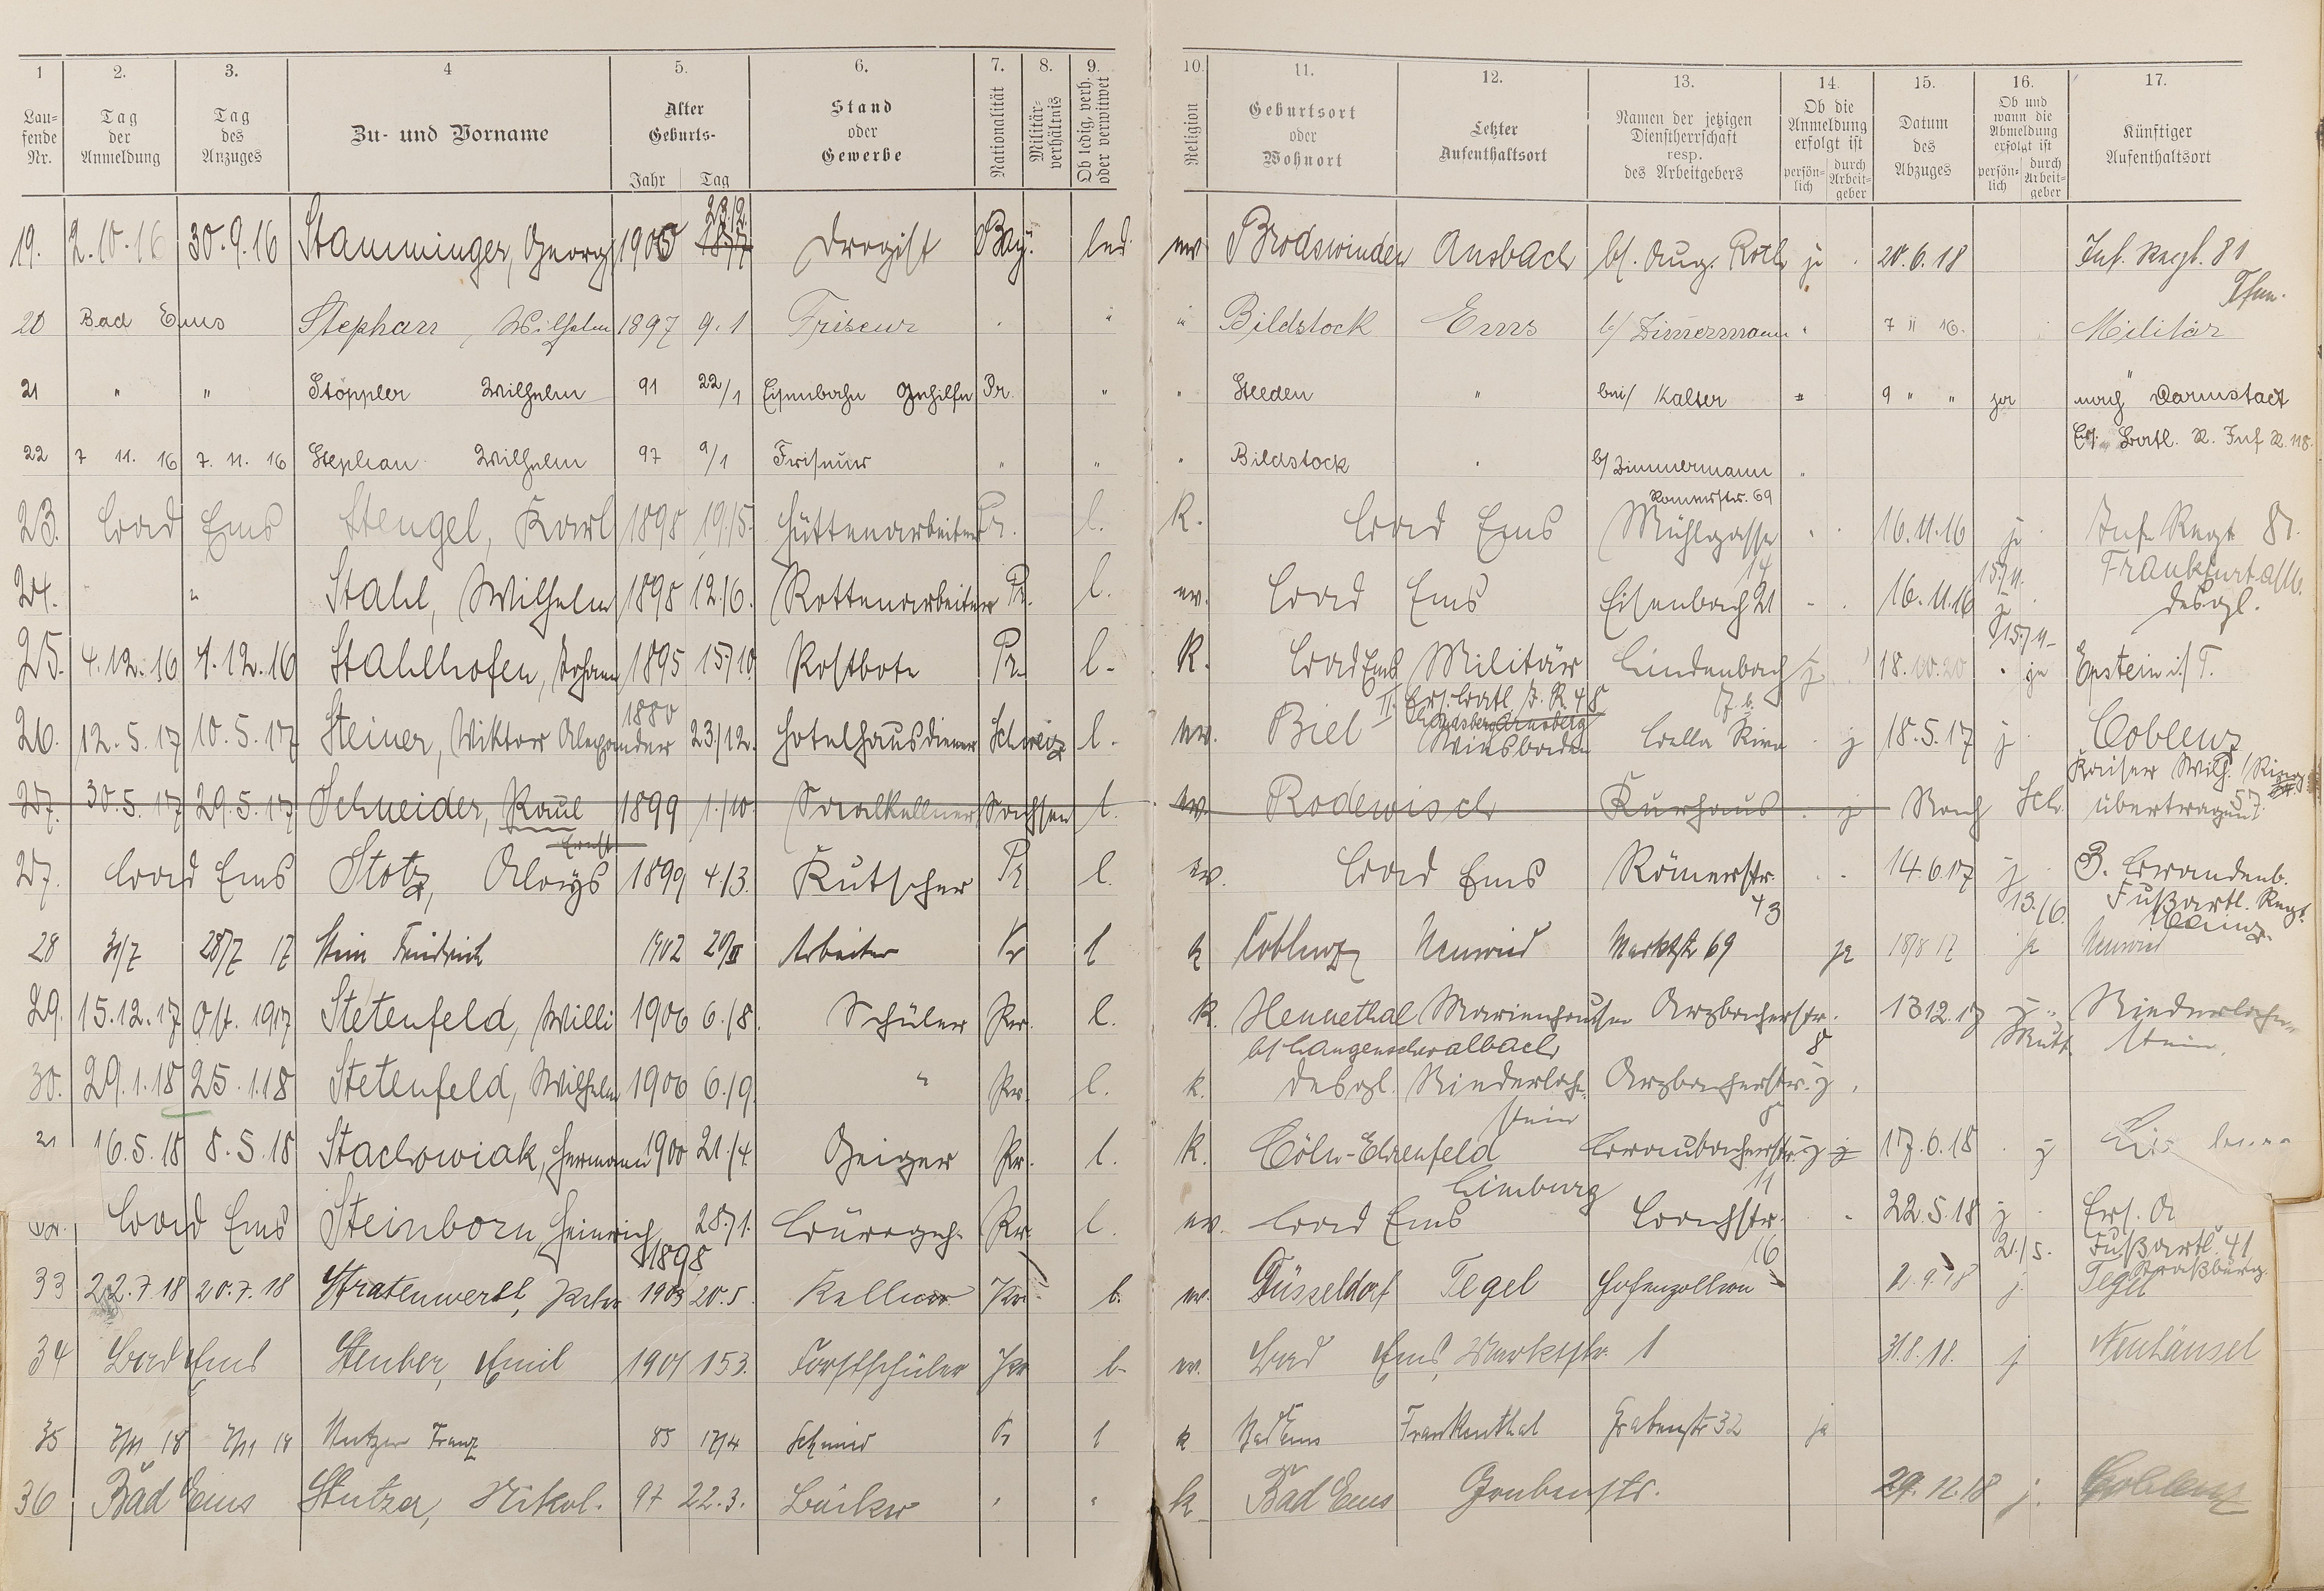 1 2. 3. 4 5. 6. 7. 8. 9. 10. 11. 12. 13. 14. 15. 16. 17.
Lau- fende Nr. Tag der Anmeldung Tag des Anzuges Zu- und Vorname Alter Geburts- Jahr Tag Stand oder Gewerbe Nationalität Militär- verhältnis Ob ledig, verh. oder verwitwet Religion Geburtsort oder Wohnort Letzter Aufenthaltsort Namen der jetzigen Dienstherrschaft resp. des Arbeitgebers Ob die Anmeldung erfolgt ist persön- lich durch Arbeit- geber Datum des Abzuges Ob und wann die Abmeldung erfolgt ist persön- lich durch Arbeit- geber Künftiger Aufenthaltsort
19. 2.10.16 30.9.16 Stamminger, Georg 1900 23/2. 18./7 Drogist Bay. led. ev Brodswinden Ansbach bf. Aug. Roth j 20.6.18 Inf. Regt. 81
20 Bad Ems Stephan, Wilhelm 1897 9.1 Friseur " " Bildstock Ems b/ Zimmermann " 7 11 16. Militär
21 " " Stöppler Wilhelm 91 22/1 Eisenbahn Gehilfe Pr. " " Steeden " bei/ Kalter " 9 " " ja nach Darmstadt
Ers. Batl. R. Inf R. 118.
22 7 11. 16 7. 11. 16 Stephan Wilhelm 97 9/1 Friseur " " " Bildstock " b/ Zimmermann "
Römerstr. 69
23. Bad Ems Stengel, Karl 1898 19./5. Hüttenarbeiter Pr. l. K. Bad Ems Mühlgasse 14 16.11.16 j. 15./11. Inf. Regt 81. Frankfurt a/M.
24. " " Stahl, Wilhelm 1898 12./6. Rottenarbeiter Pr. l. ev. Bad Ems Eisenbach 21 16.11.16 j 15./11. desgl.
25. 4.12.16 4.12.16 Stahlhofen, Johann 1895 15./10. Postbote Pr. l. K. Bad Ems Militär Lindenbach 7 b. j 18.10.20 ja Epstein i/T.
II. Ers. Batl. I. R. 48
26. 12.5.17 10.5.17 Steiner, Viktor Alexander 1880 23./12. Hotelhausdiener Schweiz l. ev. Biel Arnsberg Wiesbaden Bella Riva j 18.5.17 j Coblenz
Kaiser Wilh. Ring 57.
27. 30.5.17 29.5.17 Schneider, Paul Ernst 1899 1./10. Saalkellner Sachsen l. ev. Rodewisch Kurhaus j Nach Sch. übertragen!
27. Bad Ems Stotz, Aloys 1899 4./3. Kutscher Pr. l. ev. Bad Ems Römerstr. 43 14.6.17 j 13./6. 3. Brandenb. Fußartl. Regt. Mainz.
28 31/7 28/7 17 Stein Friedrich 1902 20/II Arbeiter Pr l k Coblenz Neuwied Marktstr 69 ja 18/8 17 ja Neuwied
29. 15.12.17 Ost. 1917 Stetenfeld, Willi 1906 6./8. Schüler Pr. l. K. Hennethal Marienhausen Arzbacherstr. 8 13.12.17 j. Mutt. Niederlahn- stein.
b/ Langenschwalbach
30. 29.1.18 25.1.18 Stetenfeld, Wilhelm 1906 6./9. " Pr. l. k. desgl. Niederlahn- stein Arzbacherstr. 8 j.
31 16.5.18 8.5.18 Stachowiak, Hermann 1900 21./4. Geiger Pr. l. K. Cöln-Ehrenfeld Limburg Braubacherstr. 11 j 17.6.18 j
Bad Ems Steinborn, Heinrich 1898 28./1. Bürogeh. Pr. l. ev. Bad Ems Bachstr. 16 22.5.18 j 21./5. Ers. A Fußartl. 41 Straßburg.
33 22.7.18 20.7.18 Stratenwerth, Peter 1903 20.5 Kellner Pr. l. ev. Düsseldorf Tegel Hohenzollern 2.9.18 j. Tegel
34 Bad Ems Steuber, Emil 1901 15.3. Forstschüler Pr l. ev. Bad Ems, Marktstr. 1 31.8.18. j Neuhäusel
35 7/11 18 7/11 18 Franz 85 17/4 Schmied Pr l k Bad Ems Frankenthal Grabenstr 32 ja
36 Bad Ems Stutzer, Nikol. 97 22.3. Bäcker " " k Bad Ems Grabenstr. 29.12.18 j. Coblenz